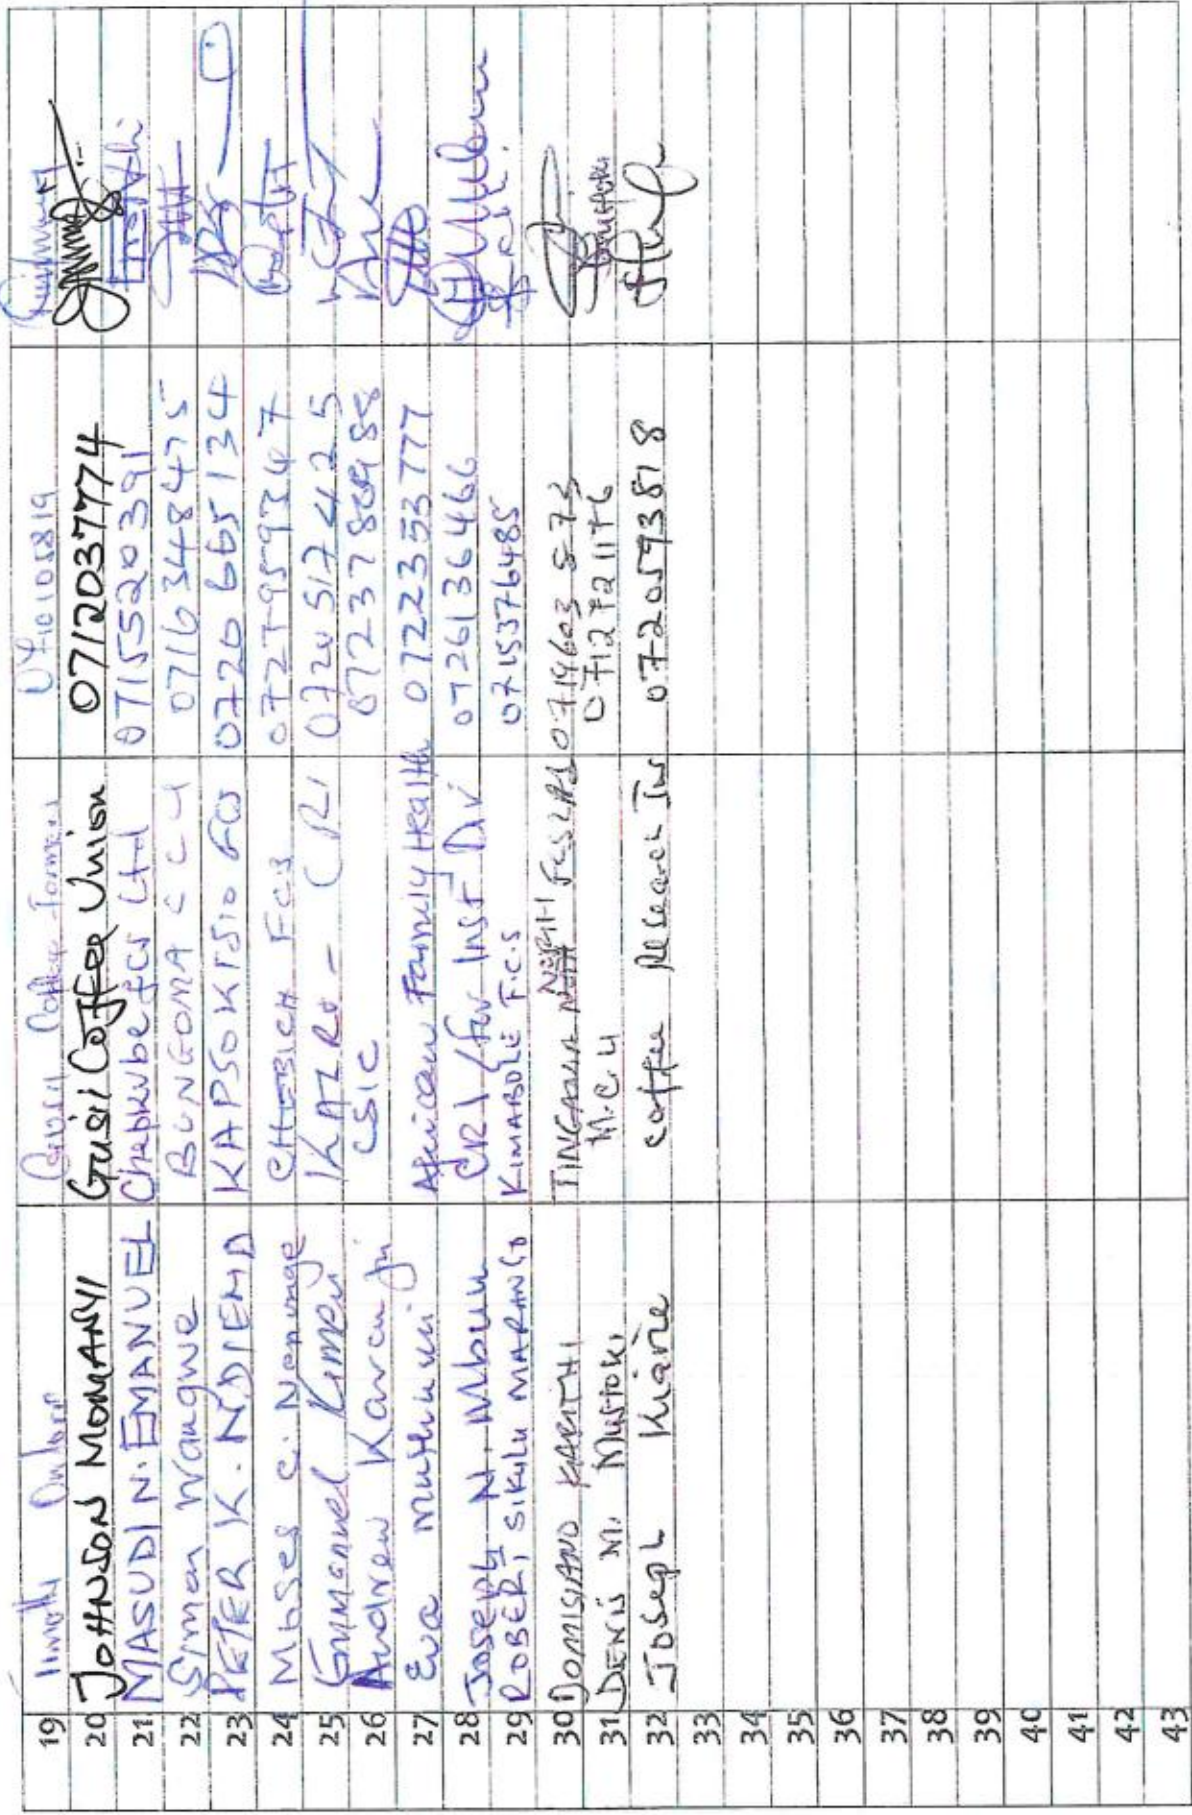 19 Timothy Coffee
20 JOHNSON MOMANYI Gusii Coffee Union 0712037774
21 MASUDI N. EMANUEL Chepkube fcs Ltd 0715520391
22 Simon Wangwe BUNGOMA C C U 0716348475
23 PETER K. NDIEMA KAPSOKISIO FCS 0720665134
24 Moses C. Nemunge CHEBICH FCS 0727959347
25 Emmanuel Kimeu KALRO - CRI 0720517425
26 Andrew Karanja CSIC
27 Eva Muthuuri African Family Health 0722353777
28 Joseph N. Mbuu CRI / for Inst Div 0726136466
29 ROBERT SIKULU MARANGO KIMABOLE F.C.S 0715376485
30 DOMISIANO KARITHI
31 DENIS M. MUSYOKI M.C.U 0712721176
32 Joseph Kiarie coffee Research 0720593818
33
34
35
36
37
38
39
40
41
42
43